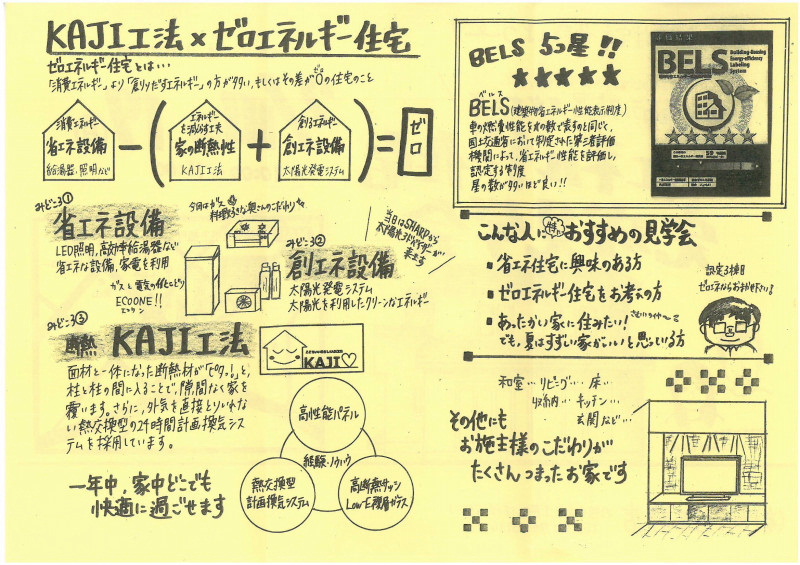 KAJI工法×ゼロエネルギー住宅
ゼロエネルギー住宅とは…
「消費エネルギー」より「創りだすエネルギー」の方が多い、もしくはその差が0の住宅のこと
消費エネルギー
省エネ設備
給湯器、照明など
−
エネルギーを減らす工夫
家の断熱性
KAJI工法
+
創るエネルギー
創エネ設備
太陽光発電システム
=
ゼロ
みどころ①
省エネ設備
LED照明、高効率給湯器など
省エネな設備、家電を利用
ガスと電気のいいとこどり
ECOONE!!
エコワン
みどころ②
創エネ設備
太陽光発電システム
太陽光を利用したクリーンなエネルギー
当日はSHARPから
来ます
みどころ③
断熱 KAJI工法
面材と一体になった断熱材が「ピタッ!」と、
柱と柱の間に入ることで、隙間なく家を
覆います。さらに、外気を直接とりいれな
い熱交換型の24時間計画換気シス
テムを採用しています。
KAJI♡
高性能パネル
経験・ノウハウ
熱交換型
計画換気システム
高断熱サッシ
Low-E複層ガラス
一年中、家中どこでも
快適に過ごせます
BELS 5つ星!!
★★★★★
ベルス
BELS(建築物省エネルギー性能表示制度)
車の燃費性能を☆の数で表すのと同じく、
国土交通省において制定された第三者評価
機関によって、省エネルギー性能を評価し、
認定する制度
星の数が多いほど良い!!
BELS
Building-Housing
Energy-efficiency
Labeling
System
こんな人に特におすすめの見学会
▪省エネ住宅に興味のある方
▪ゼロエネルギー住宅をお考えの方
▪あったかい家に住みたい!
でも、夏はすずしい家がいいと思っている方
認定3棟目
ゼロエネならおまかせ下さい!
和室… リビング… 床…
収納… キッチン…
玄関など…
その他にも
お施主様のこだわりが
たくさんつまったお家です